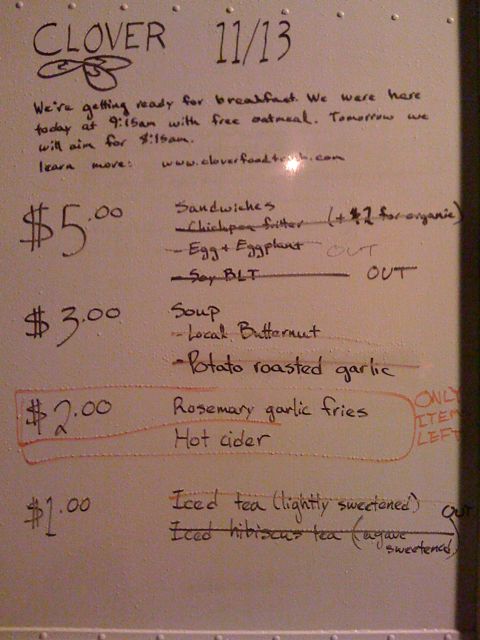 CLOVER 11/13
We're getting ready for breakfast. We were here
today at 9:15am with free oatmeal. Tomorrow we
will aim for 8:15am.
learn more: www.cloverfoodtruck.com
$5.00 Sandwiches
- Chickpea fritter (+$2 for organic)
- Egg + Eggplant OUT
- Soy BLT OUT
$3.00 Soup
- Local Butternut
- Potato roasted garlic
$2.00 Rosemary garlic fries
Hot cider
ONLY
ITEM
LEFT
$1.00 Iced tea (lightly sweetened) OUT
Iced hibiscus tea (agave
sweetened)